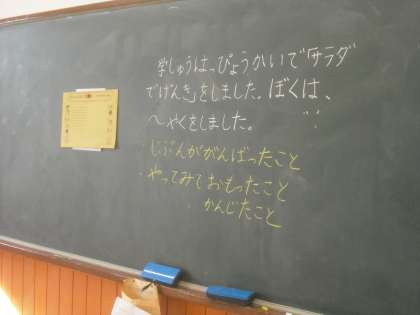 学しゅうはっぴょうかいで「サラダ
でげんき」をしました。ぼくは、
～やくをしました。
じぶんががんばったこと
・やってみておもったこと
・かんじたこと